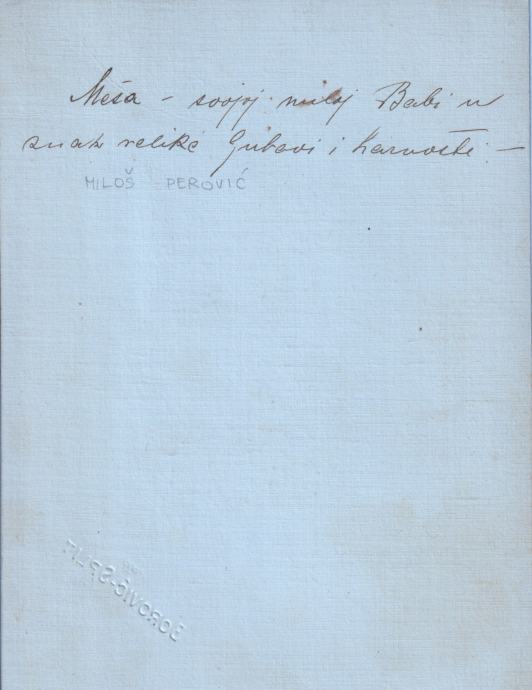 Meša – svojoj miloj Babi u
znak velike ljubavi i harnosti –
MILOŠ PEROVIĆ
BOROVIĆ-SPLIT